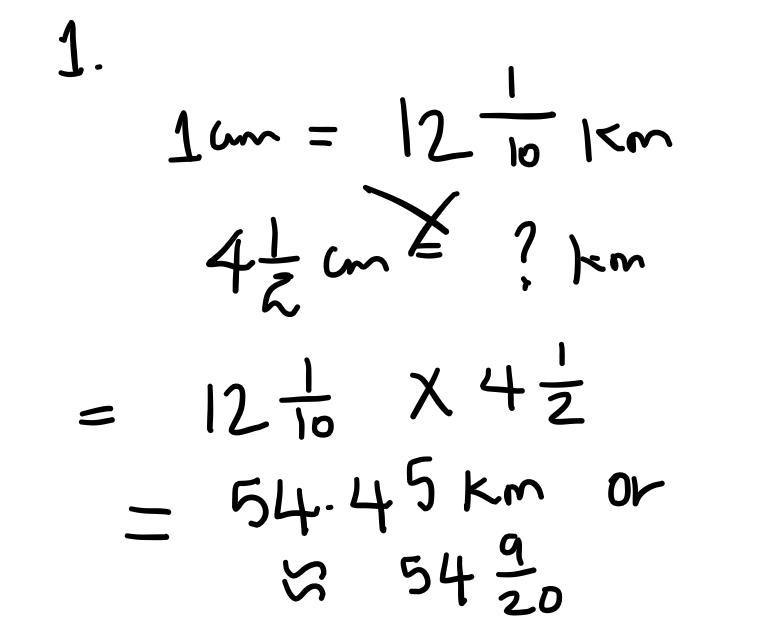 1.
1cm = 12 1/10 km
4 1/2 cm = ? km
= 12 1/10 × 4 1/2
= 54.45 km or
≈ 54 9/20